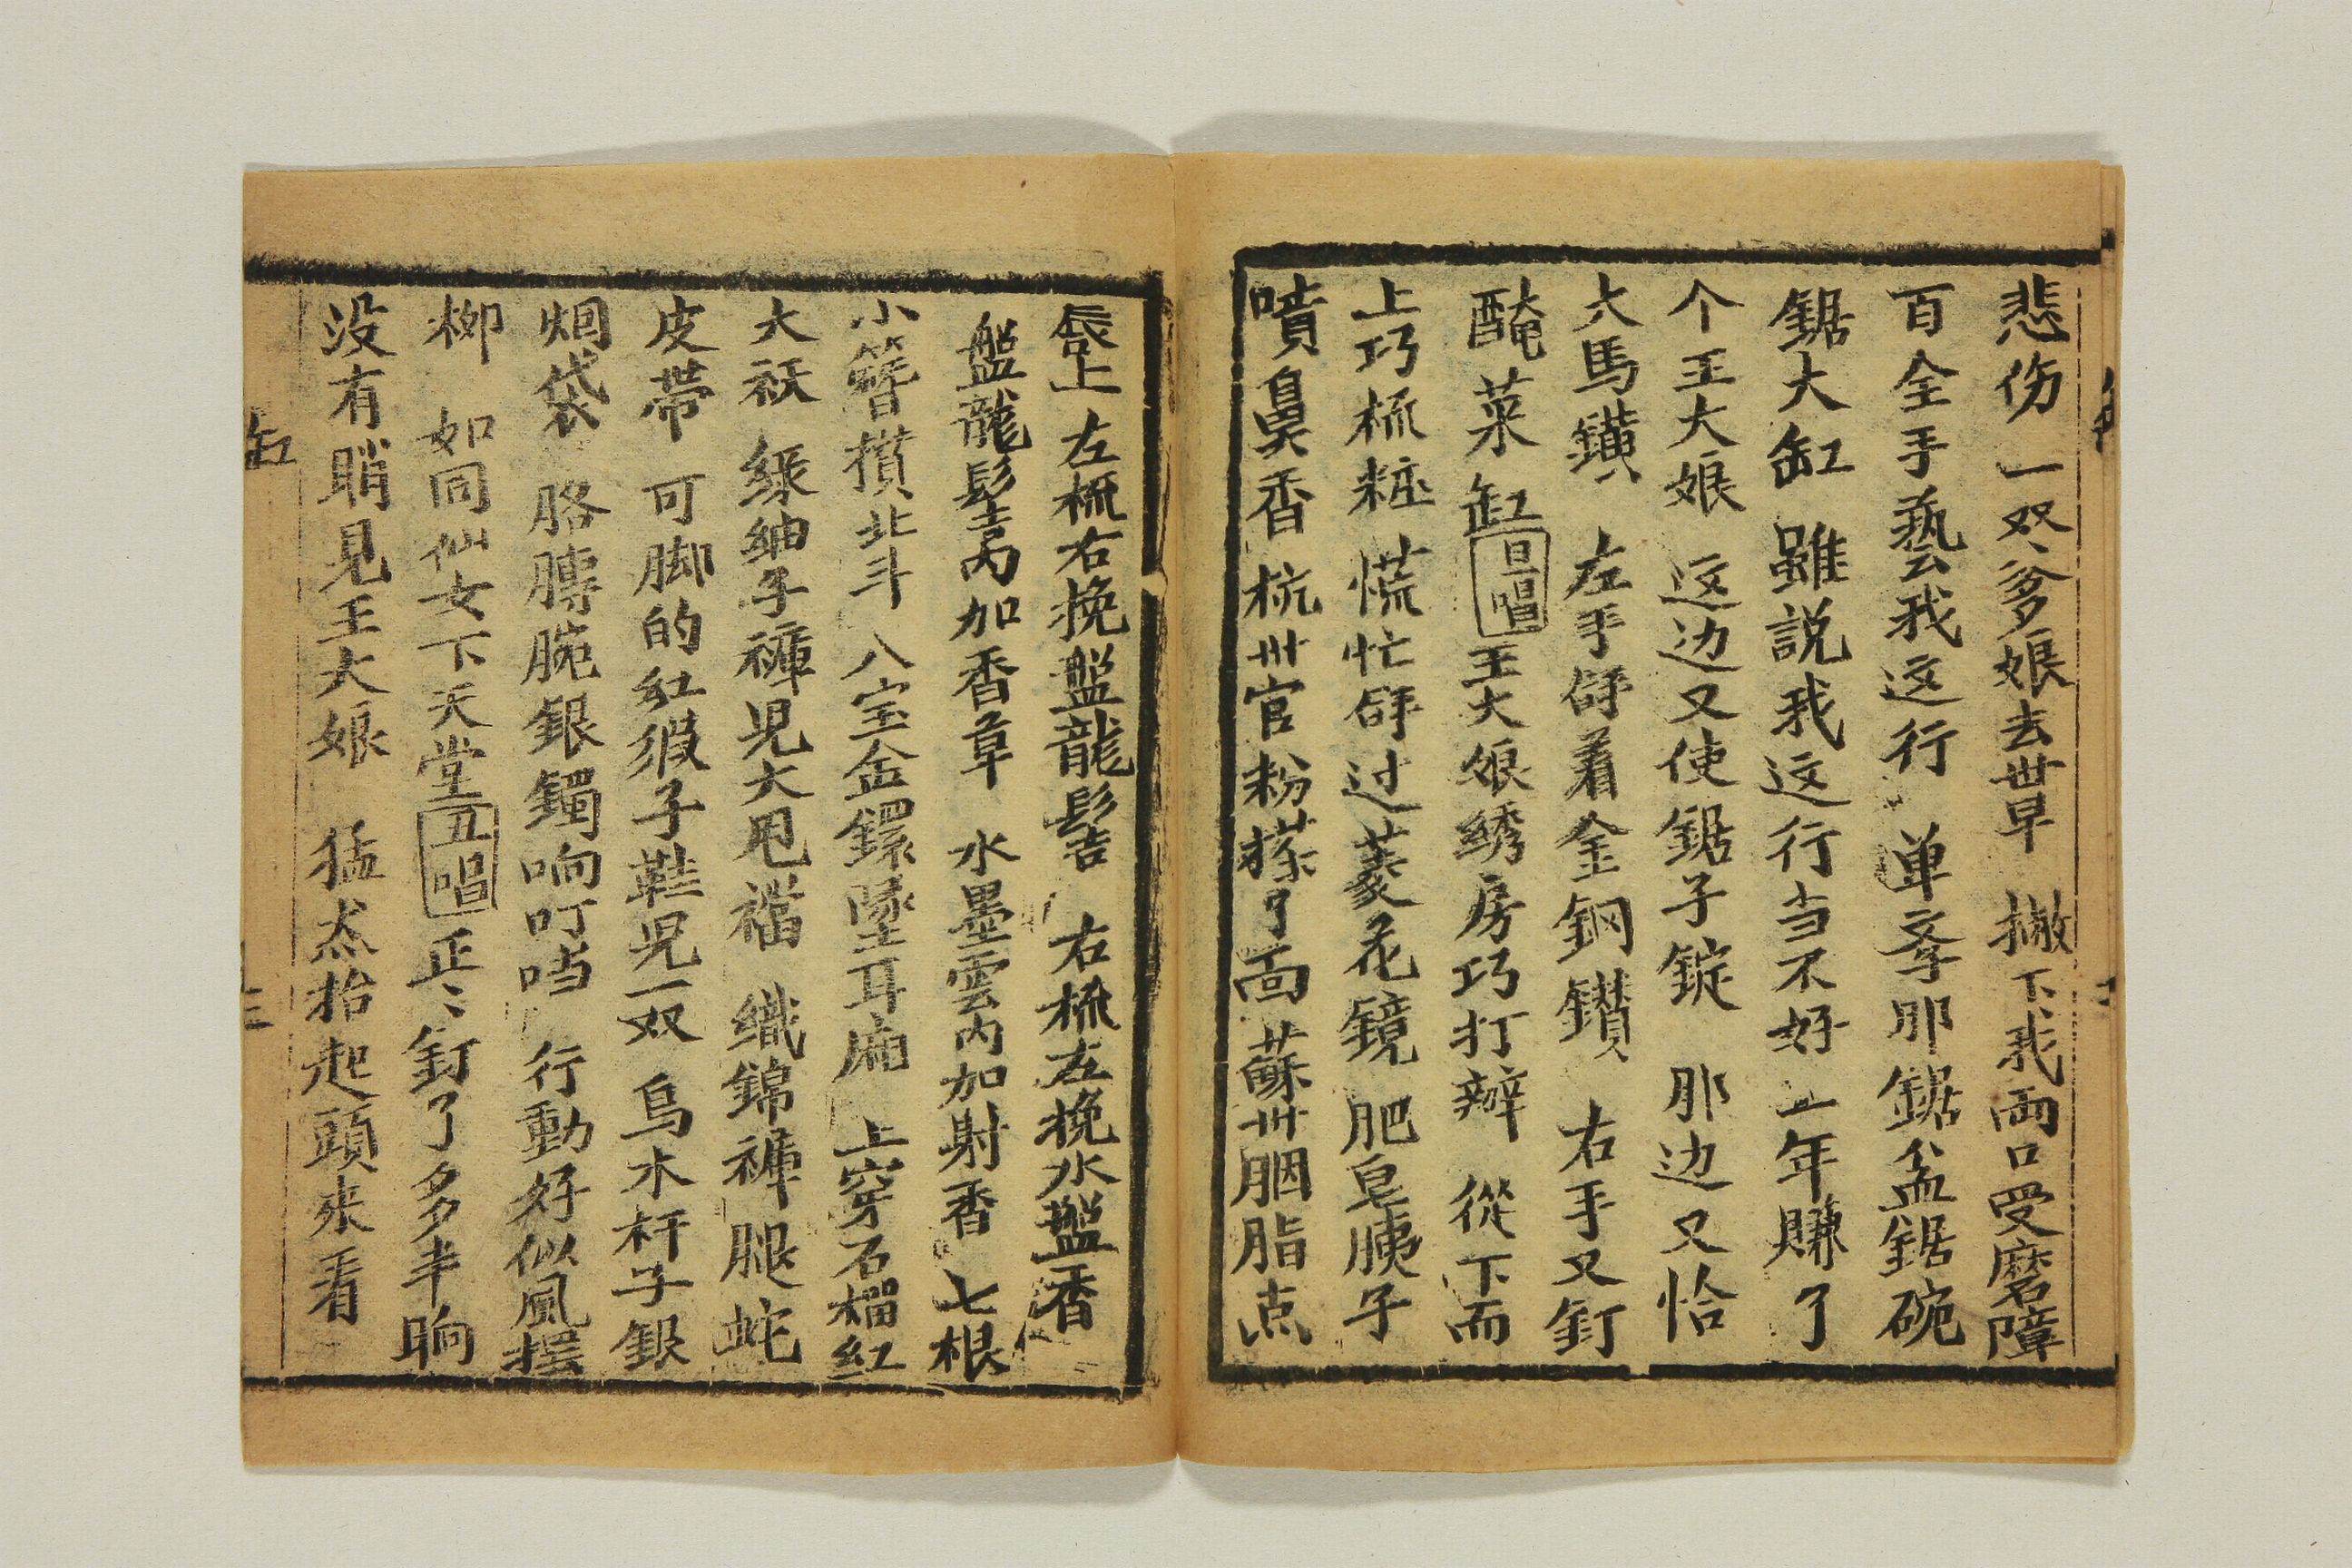 悲伤一双爹娘去世早 撇下我両口受磨障
百全手藝我这行 单孝那鋸盆鋸碗
鋸大缸 雖説我这行当不好 一年賺了
个王大娘 这边又使鋸子錠 那边又恰
大馬鐄 左手拿着金鋼鑚 右手又釘
醃菜缸 旦唱 王大娘綉房巧打辦 從下而
上巧梳粧 慌忙拿过菱花鏡 肥皂胰子
噴臭香 杭卅官粉搽了面 蘇卅胭脂点
唇上 左梳右挽盤龍髻 右梳左挽水盤香
盤龍髻內加香草 水墨雲內加射香 七根
小簪攢北斗 八宝金鐶墜耳廂 上穿石榴紅
大袄 綠紬子褲児大甩襠 織錦褲腿蛇
皮帯 可脚的紅緞子鞋児一双 烏木杆子銀
烟袋 胳膊腕銀鐲响叮噹 行動好似風摆
柳 如同仙女下天堂 丑唱 正〻釘了多半晌
没有睄見王大娘 猛然抬起頭来看
缸
三